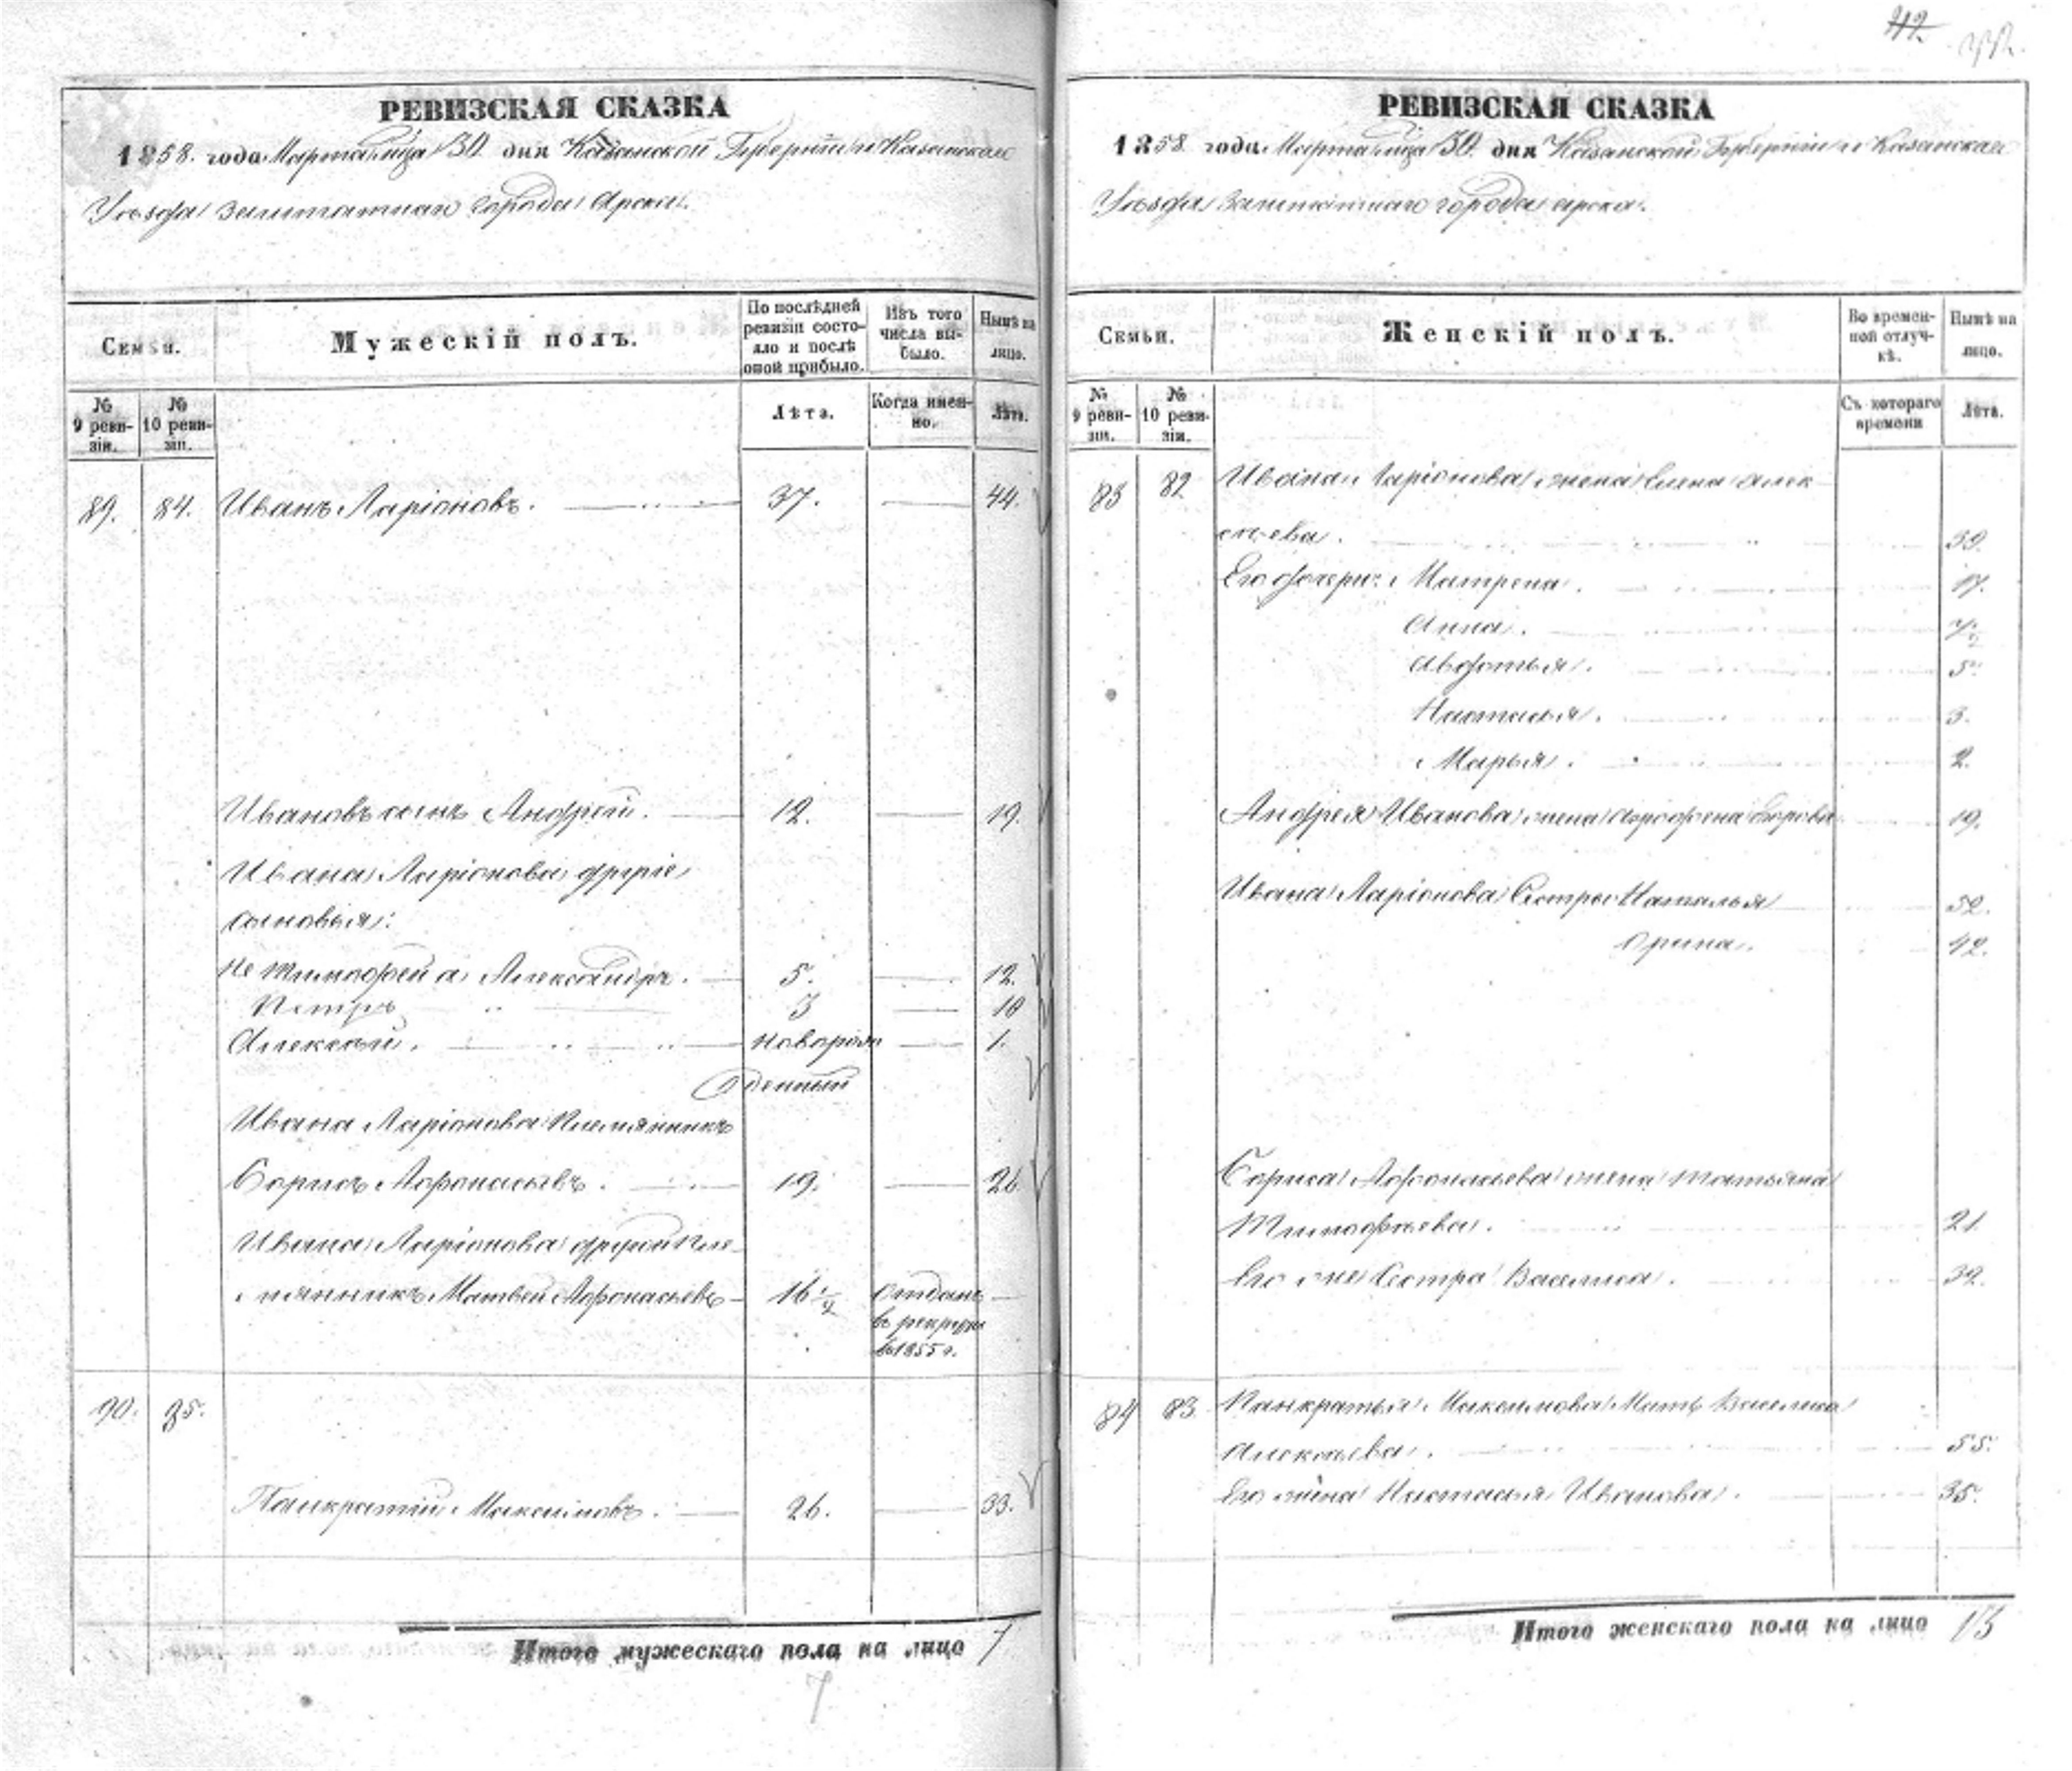 42
РЕВИЗСКАЯ СКАЗКА
1858. года Марта м-ца 30 дня Казанской Губерніи и Казанскаго
Уѣзда заштатнаго города Арска.
Семьи.
Мужескій полъ.
По послѣдней ревизіи состояло и послѣ оной прибыло.
Изъ того числа выбыло.
Нынѣ на лицо.
№ 9 ревизіи.
№ 10 ревизіи.
Лѣта.
Когда именно.
Лѣта.
89. 84. Иванъ Ларіоновъ. 37. 44.
Ивановъ сынъ Андрей. 12. 19.
Ивана Ларіонова другіе
сыновья:
не Тимофей а Александръ. 5. 12.
Петръ 3 10
Алексѣй. новорож 1.
денный
Ивана Ларіонова племянникъ
Борисъ Афонасьевъ. 19. 26
Ивана Ларіонова другой пле-
мянникъ Матвей Афонасьевъ 16 1/2 отданъ
в рекруты
в 1855 г.
90. 85.
Панкратій Максимовъ. 26. 33.
Итого мужескаго пола на лицо 7
7
РЕВИЗСКАЯ СКАЗКА
1858 года Марта м-ца 30. дня Казанской Губерніи и Казанскаго
Уѣзда Заштатнаго города Арска.
Семьи.
Женскій полъ.
Во временной отлучкѣ.
Нынѣ на лицо.
№ 9 ревизіи.
№ 10 ревизіи.
Съ котораго времени
Лѣта.
83 82 Ивана Ларіонова жена Елена Алек
сѣева. 39.
Его дочери: Матрена. 17.
Анна. 7 1/2
Авдотья. 5.
Настасья. 3.
Марья. 2.
Андрея Иванова жена Афрофена Егорова 19.
Ивана Ларіонова Сестры Наталья 52.
Орина. 42.
Бориса Афонасьева жена Татьяна
Тимофѣева. 21.
Его же Сестра Василиса. 32.
84 83 Панкратья Максимова Мать Василиса
Алексѣева. 55.
Его жена Настасья Иванова. 35.
Итого женскаго пола на лицо 13